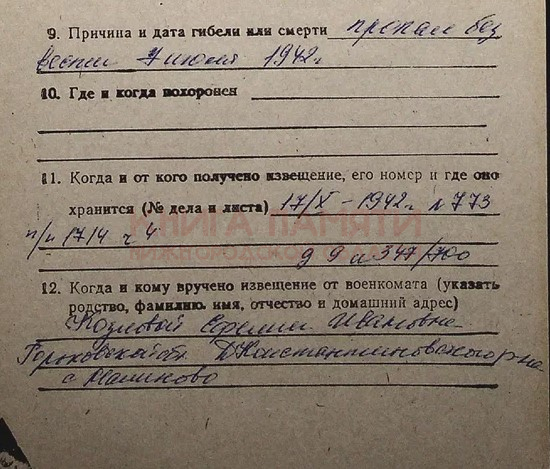 9. Причина и дата гибели или смерти пропал без
вести 7 июля 1942 г
10. Где и когда похоронен
11. Когда и от кого получено извещение, его номер и где оно
хранится (№ дела и листа) 17/X – 1942 г. № 773
КНИГА ПАМЯТИ
п/п 1714 ч 4
НИЖЕГОРОДСКОЙ
д 9 л 347/700
12. Когда и кому вручено извещение от военкомата (указать
родство, фамилию, имя, отчество и домашний адрес)
Козловой Ивановне
Горьковской обл. Д Константиновского р-на
с Малиново